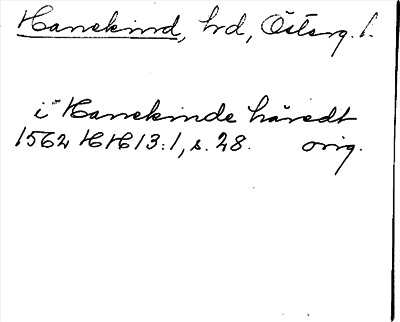 Hanekind, hd, Österg. l.
i "Hanekinde häredt
1562 HH 13:1, s. 28. orig.